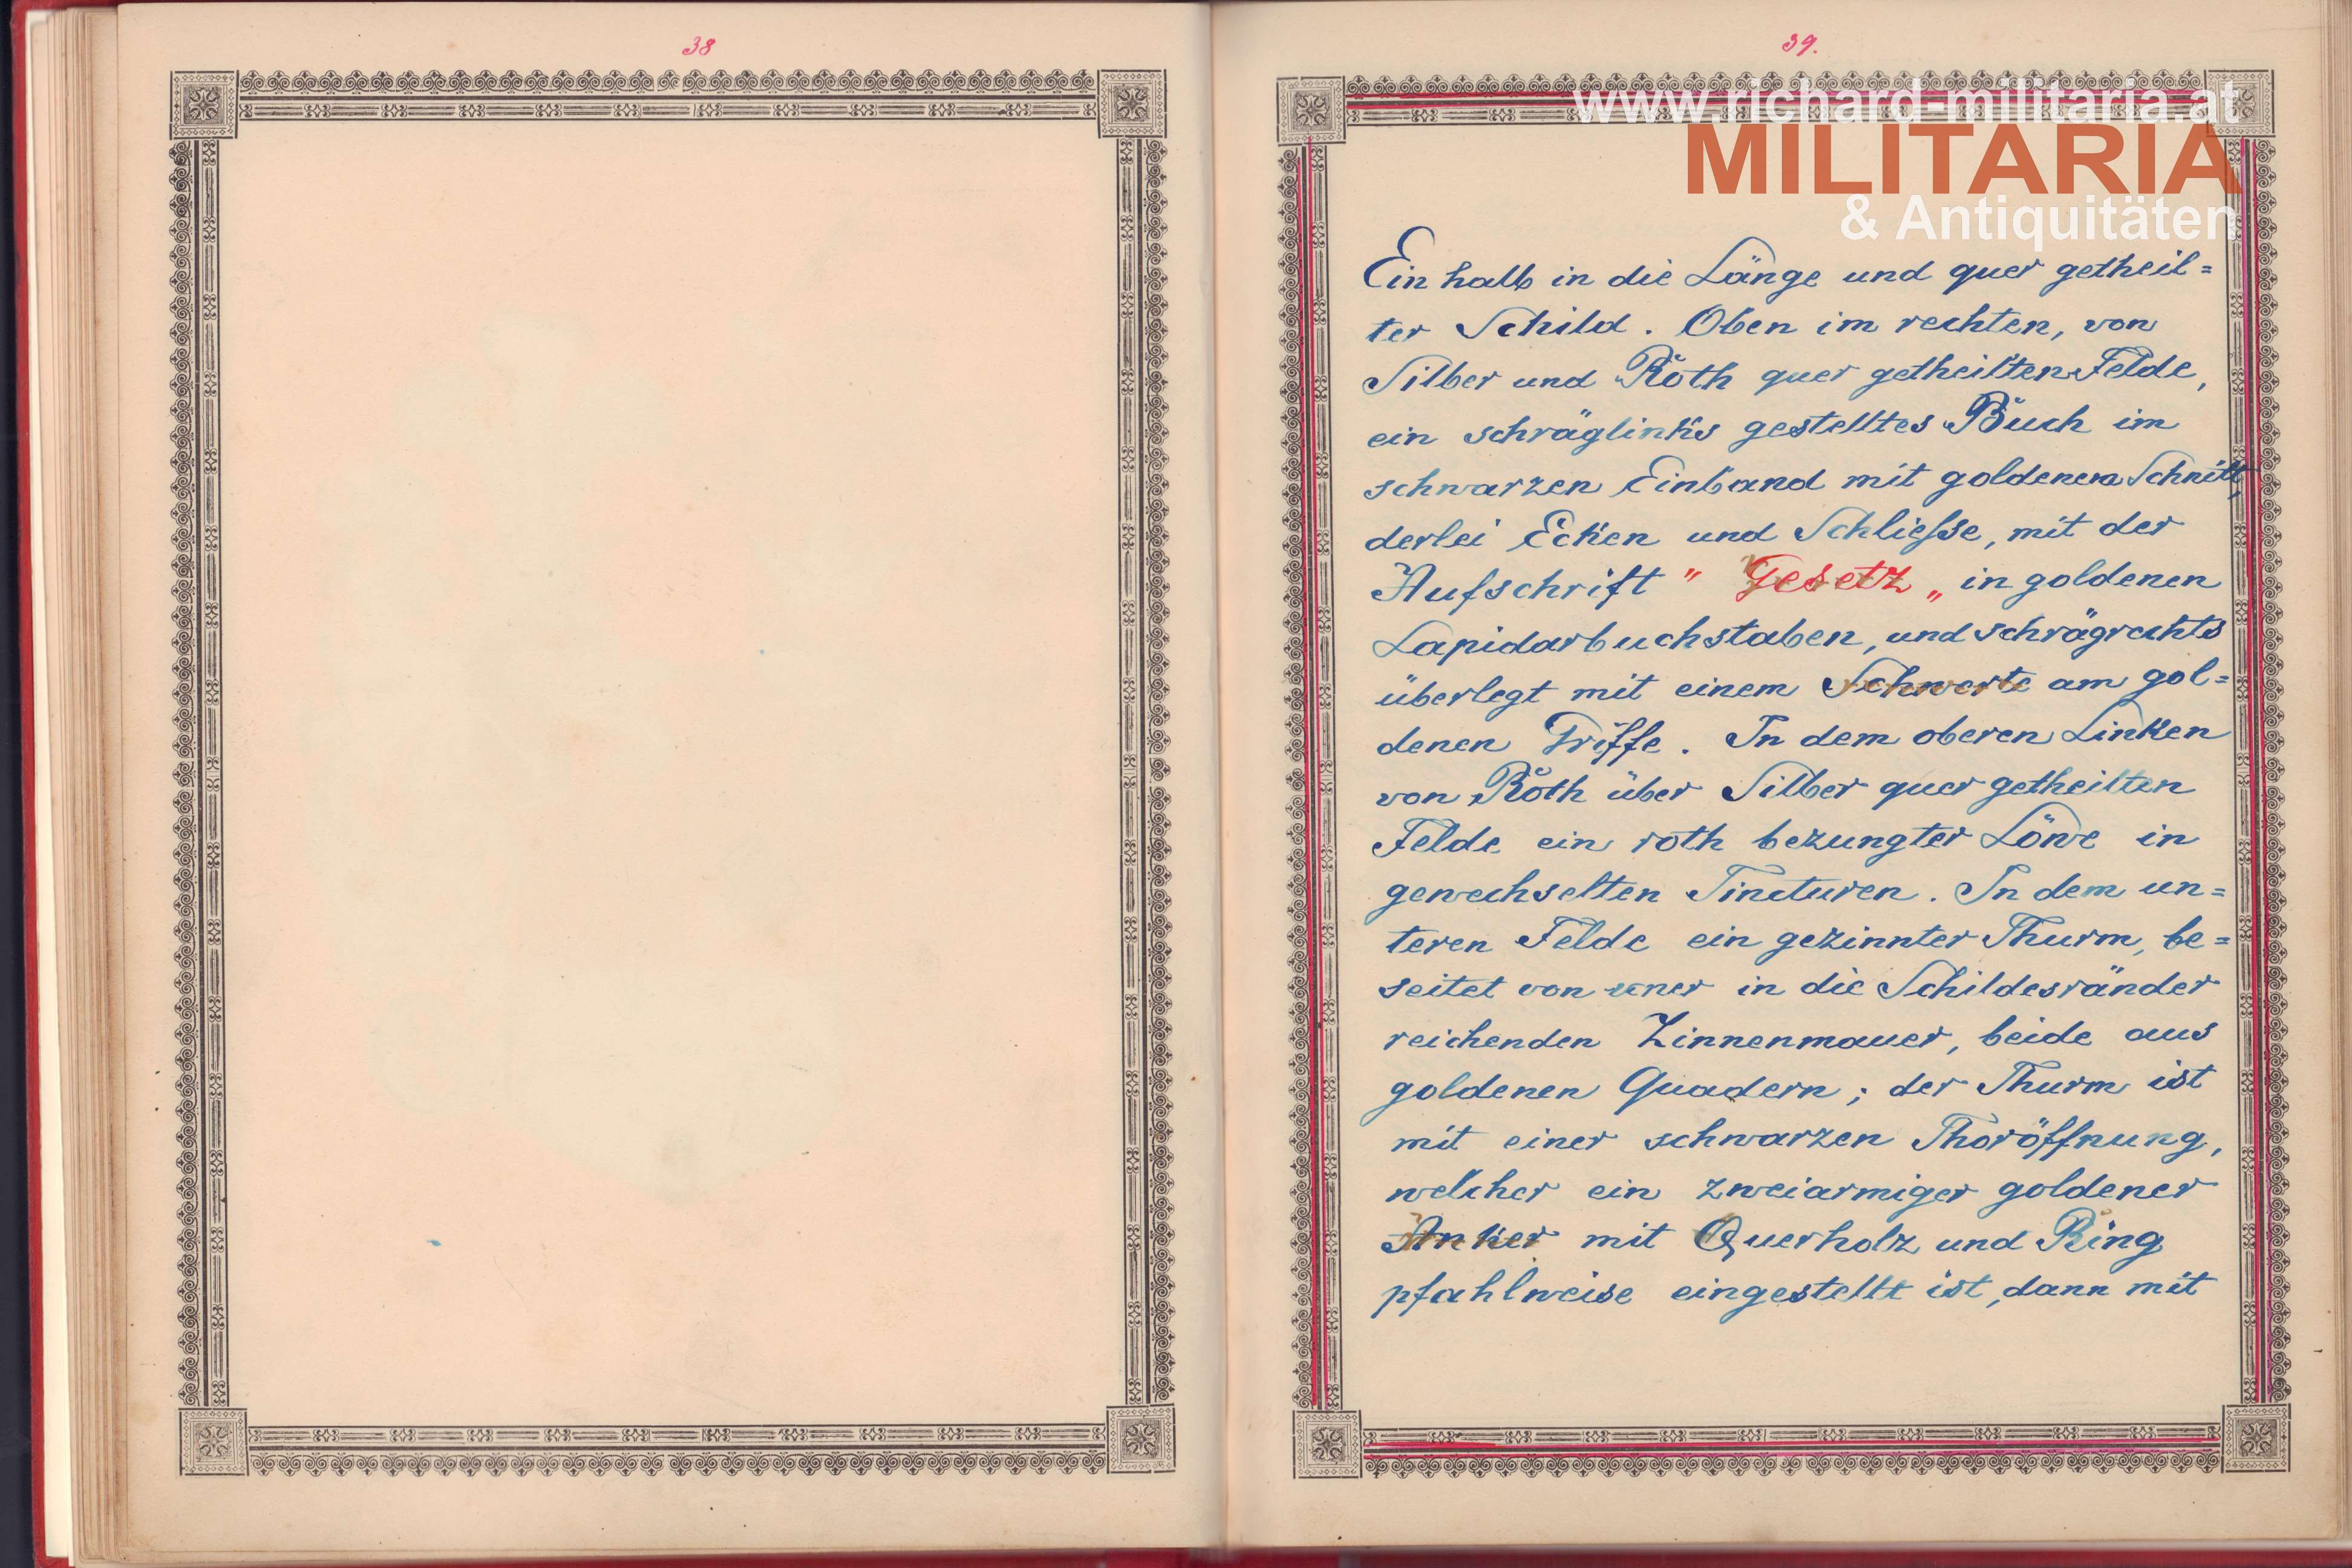 38
39.
www.richard-militaria.at
MILITARIA
& Antiquitäten
Ein halb in die Länge und quer getheil=
ter Schild. Oben im rechten, von
Silber und Roth quer getheilten Felde,
ein schräglinks gestelltes Buch im
schwarzen Einband mit goldenem Schnitt,
derlei Ecken und Schließe, mit der
Aufschrift " Gesetz „ in goldenen
Lapidarbuchstaben, und schrägrechts
überlegt mit einem Schwerte am gol=
denen Griffe. In dem oberen Linken
von Roth über Silber quer getheilten
Felde ein roth bezungter Löwe in
gewechselten Tincturen. In dem un=
teren Felde ein gezinnter Thurm, be=
seitet von einer in die Schildesränder
reichenden Zinnenmauer, beide aus
goldenen Quadern; der Thurm ist
mit einer schwarzen Thoröffnung,
welcher ein zweiarmiger goldener
Anker mit Querholz und Ring
pfahlweise eingestellt ist, dann mit